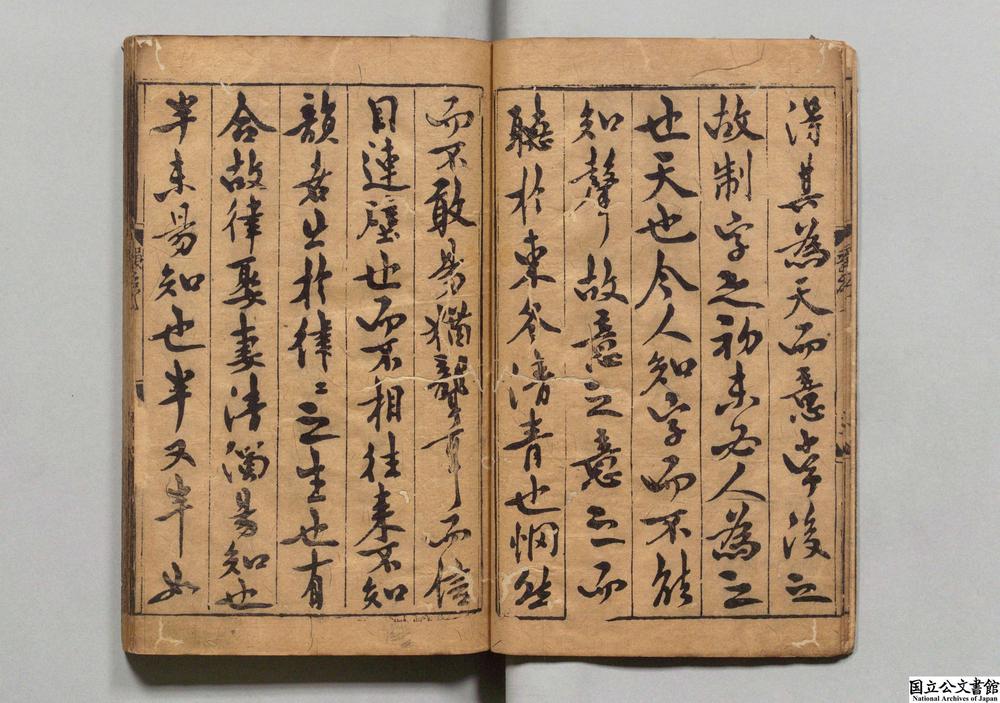 得其為天而意字後之
故制字之初未必人為之
也天也今人知字而不能
知聲故意之意之而
聽於東冬清青也惘然
而不敢易猶聾耳而信
目連壁也而不相往來不知
韻者生於律〻之生也有
合故律娶妻清濁易知也
半未易知也半又半如
国立公文書館
National Archives of Japan